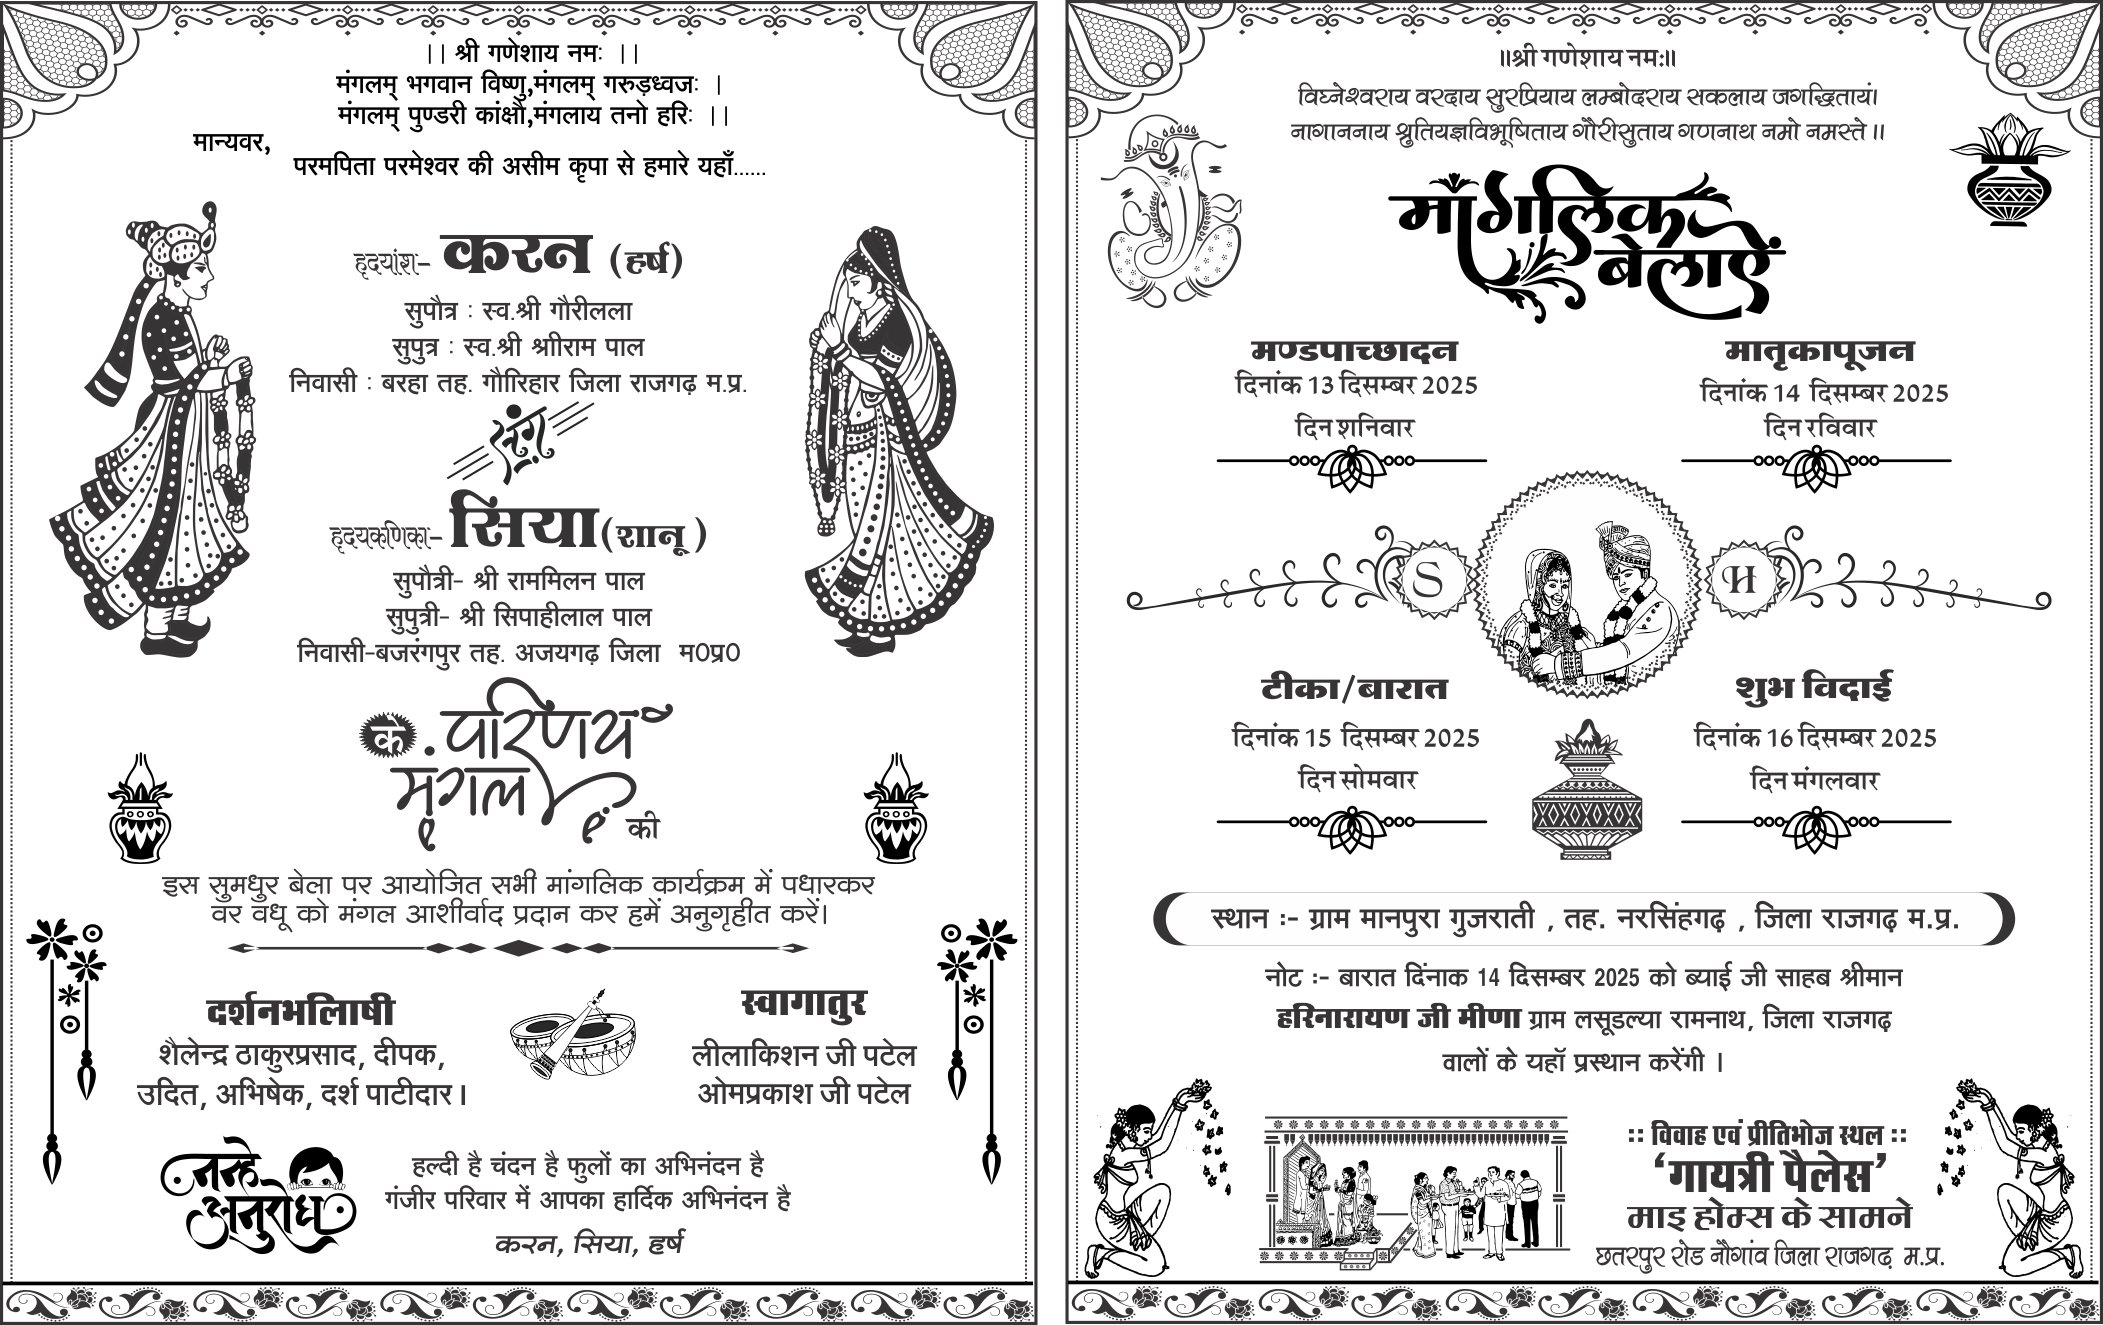 ।। श्री गणेशाय नमः ।।
मंगलम् भगवान विष्णु,मंगलम् गरुड़ध्वजः ।
मंगलम् पुण्डरी कांक्षौ,मंगलाय तनो हरिः ।।
मान्यवर,
परमपिता परमेश्वर की असीम कृपा से हमारे यहाँ......
हृदयांश- करन (हर्ष)
सुपौत्र : स्व.श्री गौरीलला
सुपुत्र : स्व.श्री श्राीराम पाल
निवासी : बरहा तह. गौारिहार जिला राजगढ़ म.प्र.
संग
हृदयकणिका- सिया (शानू )
सुपौत्री- श्री राममिलन पाल
सुपुत्री- श्री सिपाहीलाल पाल
निवासी-बजरंगपुर तह. अजयगढ़ जिला म0प्र0
के परिणय
मंगल की
इस सुमधुर बेला पर आयोजित सभी मांगलिक कार्यक्रम में पधारकर
वर वधू को मंगल आशीर्वाद प्रदान कर हमें अनुगृहीत करें।
दर्शनभलिाषी
शैलेन्द्र ठाकुरप्रसाद, दीपक,
उदित, अभिषेक, दर्श पाटीदार।
स्वागातुर
लीलाकिशन जी पटेल
ओमप्रकाश जी पटेल
नन्हे
अनुरोध
हल्दी है चंदन है फुलों का अभिनंदन है
गंजीर परिवार में आपका हार्दिक अभिनंदन है
करन, सिया, हर्ष
॥श्री गणेशाय नमः॥
विघ्नेश्वराय वरदाय सुरप्रियाय लम्बोदराय सकलाय जगद्धितायं।
नागाननाय श्रुतियज्ञविभूषिताय गौरीसुताय गणनाथ नमो नमस्ते ।।
माँगलिक
बेलाऐं
मण्डपाच्छादन
दिनांक 13 दिसम्बर 2025
दिन शनिवार
मातृकापूजन
दिनांक 14 दिसम्बर 2025
दिन रविवार
S
H
टीका/बारात
दिनांक 15 दिसम्बर 2025
दिन सोमवार
शुभ विदाई
दिनांक 16 दिसम्बर 2025
दिन मंगलवार
स्थान :- ग्राम मानपुरा गुजराती , तह. नरसिंहगढ़ , जिला राजगढ़ म.प्र.
नोट :- बारात दिंनाक 14 दिसम्बर 2025 को ब्याई जी साहब श्रीमान
हरिनारायण जी मीणा ग्राम लसूडल्या रामनाथ, जिला राजगढ़
वालों के यहॉ प्रस्थान करेंगी ।
:: विवाह एवं प्रीतिभोज स्थल ::
‘गायत्री पैलेस’
माइ होम्स के सामने
छतरपुर रोड नौगांव जिला राजगढ़ म.प्र.